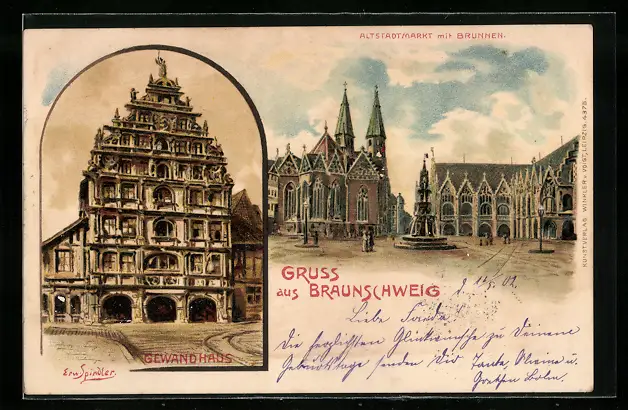 ALTSTADTMARKT mit BRUNNEN.
KUNSTVERLAG WINKLER u. VOIGT, LEIPZIG. 4378.
GRUSS
aus BRAUNSCHWEIG
GEWANDHAUS
Ern Spindler.
02
Liebe
Die herzlichsten Glückwünsche zu Deinem
Geburtstage senden Dir Tante, u.
Gretchen